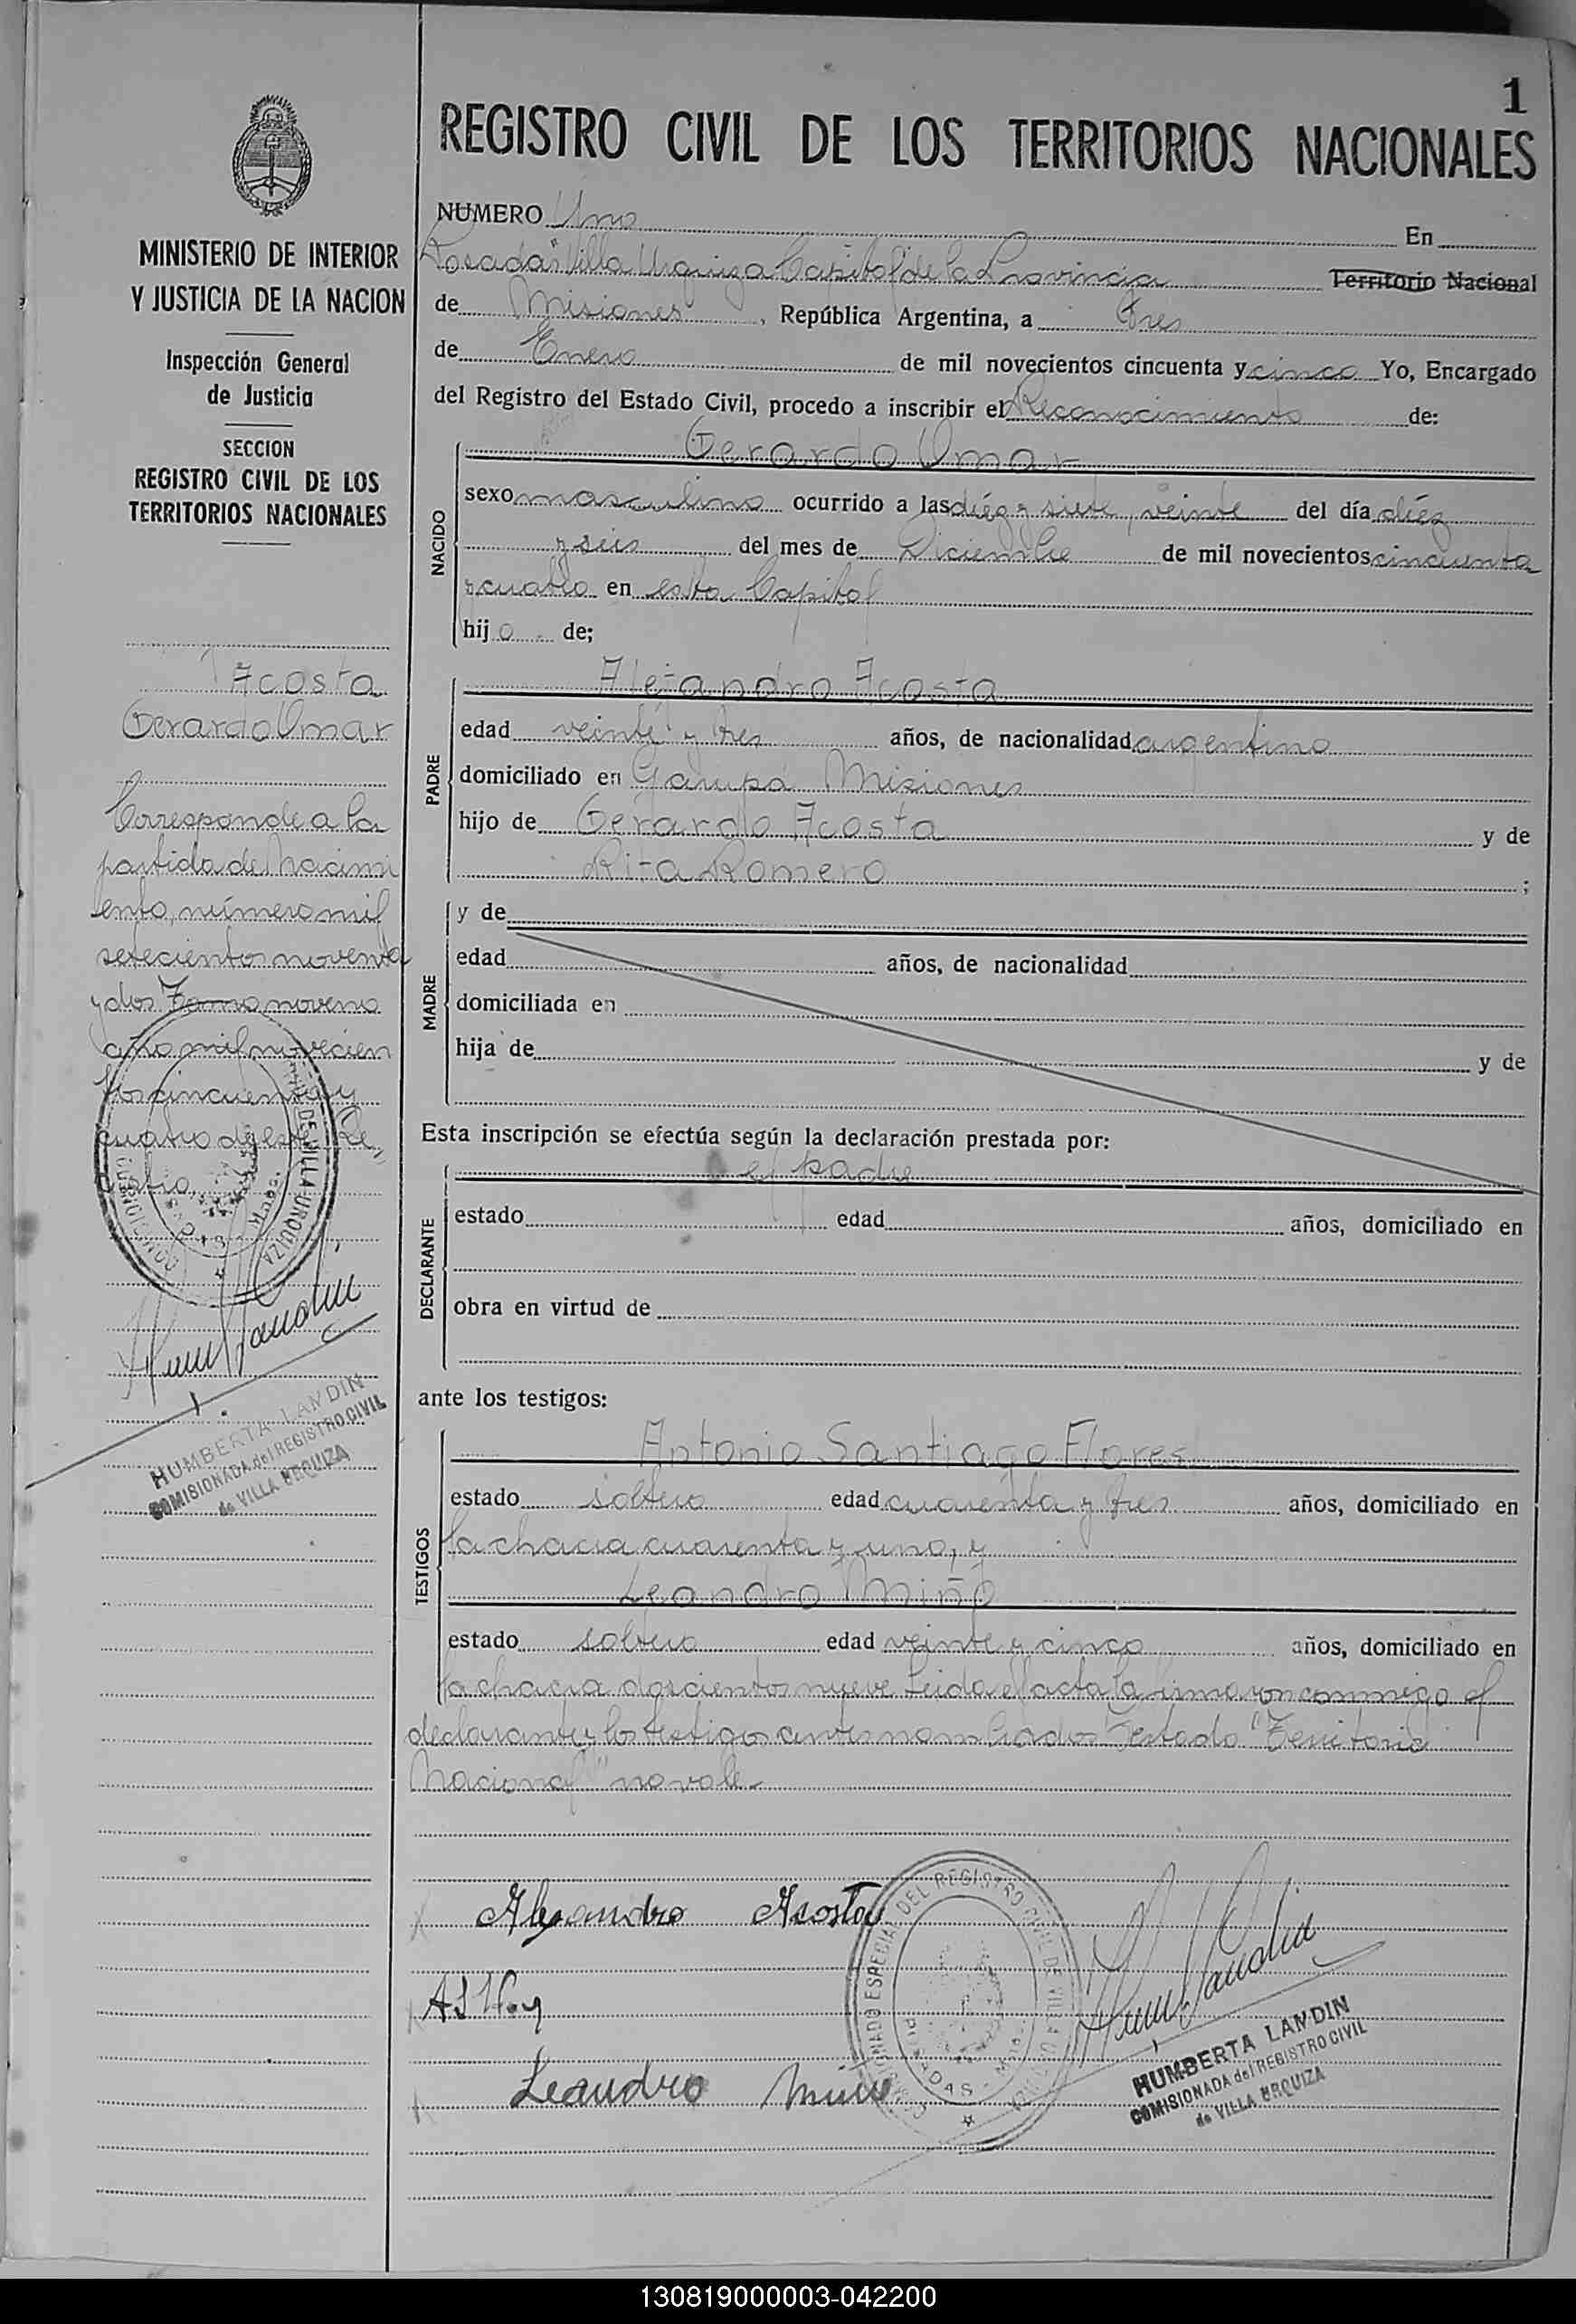 1
REGISTRO CIVIL DE LOS TERRITORIOS NACIONALES
MINISTERIO DE INTERIOR
Y JUSTICIA DE LA NACION
Inspección General
de Justicia
SECCION
REGISTRO CIVIL DE LOS
TERRITORIOS NACIONALES
Acosta
Gerardo Omar
Corresponde a la
partida de Nacimi
ento, número mil
setecientos noventa
y dos Tomo noveno
año mil novecien
tos cincuenta y
cuatro de este Re
gistro.
HUMBERTA LANDIN
COMISIONADA del REGISTRO CIVIL
de VILLA URQUIZA
NUMERO Uno En
Posadas "Villa Urquiza Capital" de la Provincia Territorio Nacional
de Misiones, República Argentina, a Tres
de Enero de mil novecientos cincuenta y cinco Yo, Encargado
del Registro del Estado Civil, procedo a inscribir el Reconocimiento de:
NACIDO
Gerardo Omar
sexo masculino ocurrido a las diéz y siete, veinte del día diéz
y seis del mes de Diciembre de mil novecientos cincuenta
y cuatro en esta Capital
hijo de;
PADRE
Alejandro Acosta
edad veinte y tres años, de nacionalidad argentino
domiciliado en Garupá Misiones
hijo de Gerardo Acosta y de
Rita Romero ;
MADRE
y de
edad años, de nacionalidad
domiciliada en
hija de y de
Esta inscripción se efectúa según la declaración prestada por:
DECLARANTE
el padre
estado edad años, domiciliado en
obra en virtud de
ante los testigos:
TESTIGOS
Antonio Santiago Flores
estado soltero edad cuarenta y tres años, domiciliado en
la chacra cuarenta y uno, y
Leandro Miño
estado soltero edad veinte y cinco años, domiciliado en
la chacra doscientos nueve. Leida el acta la firmaron conmigo el
declarante y los testigos antes nombrados Testado "Territorio
Nacional" no vale.
Alejandro Acosta
Leandro Miño
HUMBERTA LANDIN
COMISIONADA del REGISTRO CIVIL
de VILLA URQUIZA
130819000003-042200